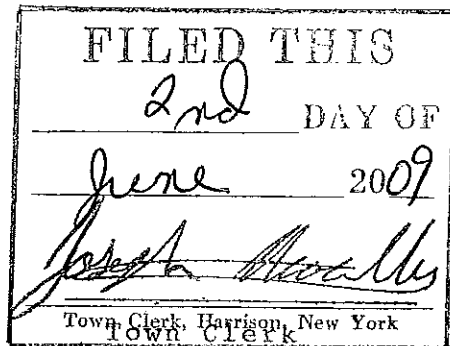 FILED THIS
2nd DAY OF
June 2009
Joseph
Town Clerk, Harrison, New York
Town Clerk